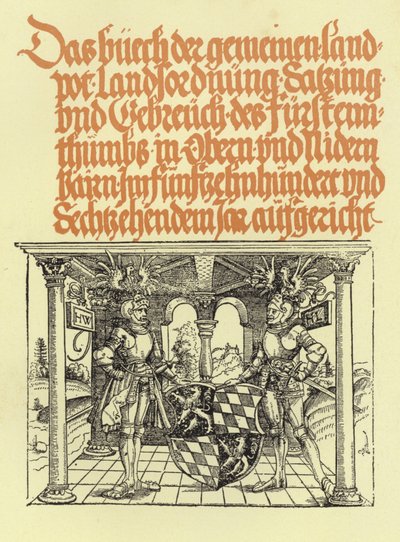 Das büech der gemeinen land-
pot· Landsordnüng· Satzüng·
vnd Gebreüch· des Fürstenn-
thümbs· in Obern· vnd Nidern
Bairn· Im fünftzehnhündert vnd
Sechtzehendem Jar aüfgericht
HW
HL